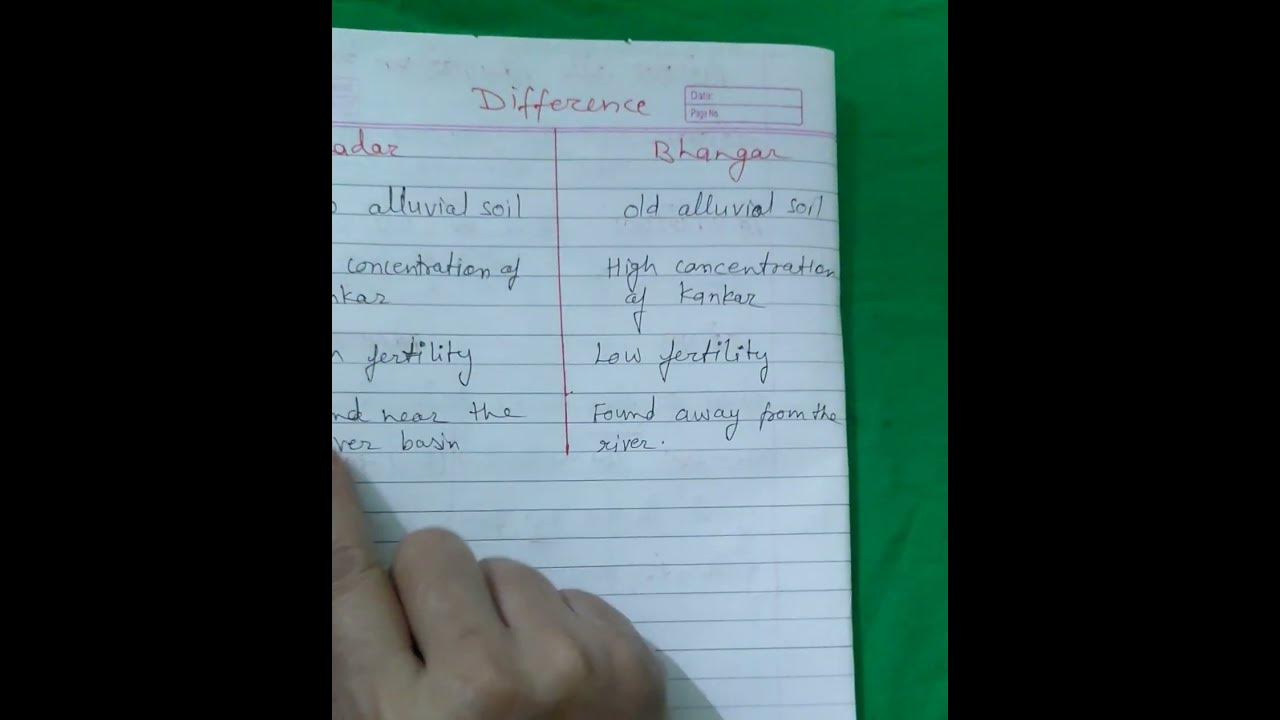 Difference
Date:
Page No.
adar
Bhangar
alluvial soil
old alluvial soil
concentration of
nkar
High concentration
of Kankar
fertility
Low fertility
nd near the
ver basin
Found away from the
river.